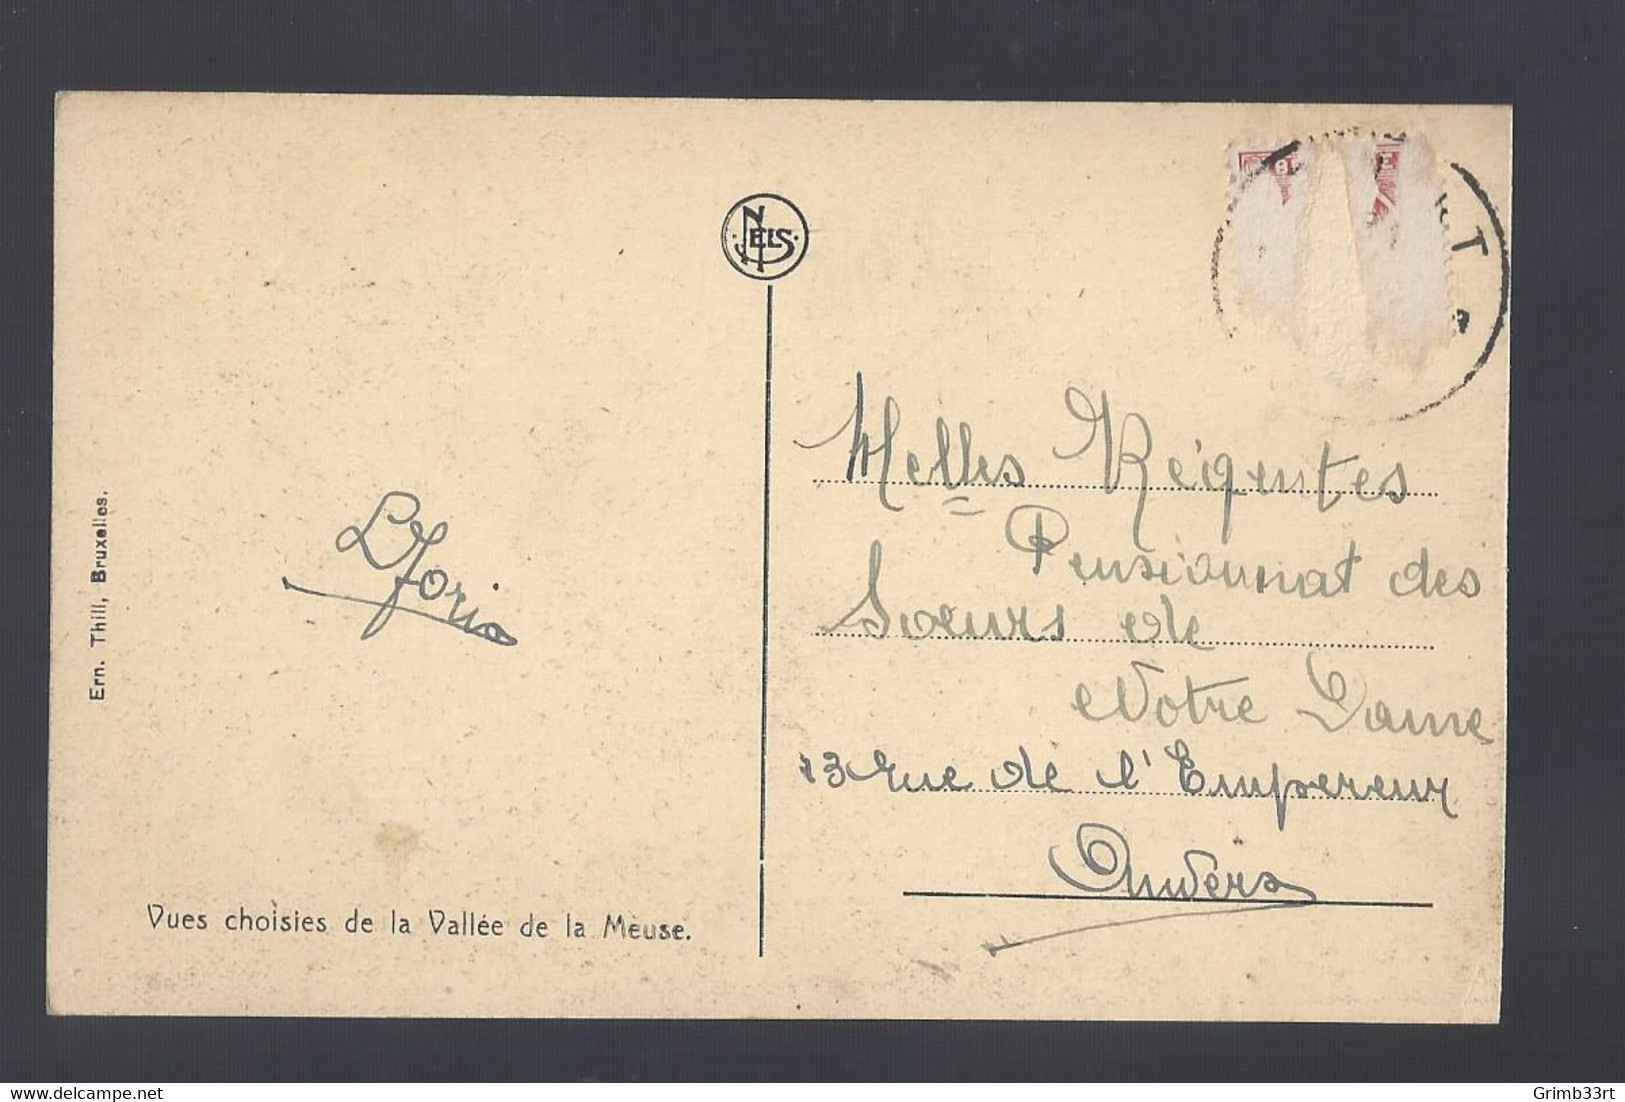 NELS
Ern. Thill, Bruxelles.
L Joris
Vues choisies de la Vallée de la Meuse.
Melles Régentes
Pensionnat des
Soeurs de
Notre Dame
13 rue de l'Empereur
Anvers
delcampe.net
Grimb33rt